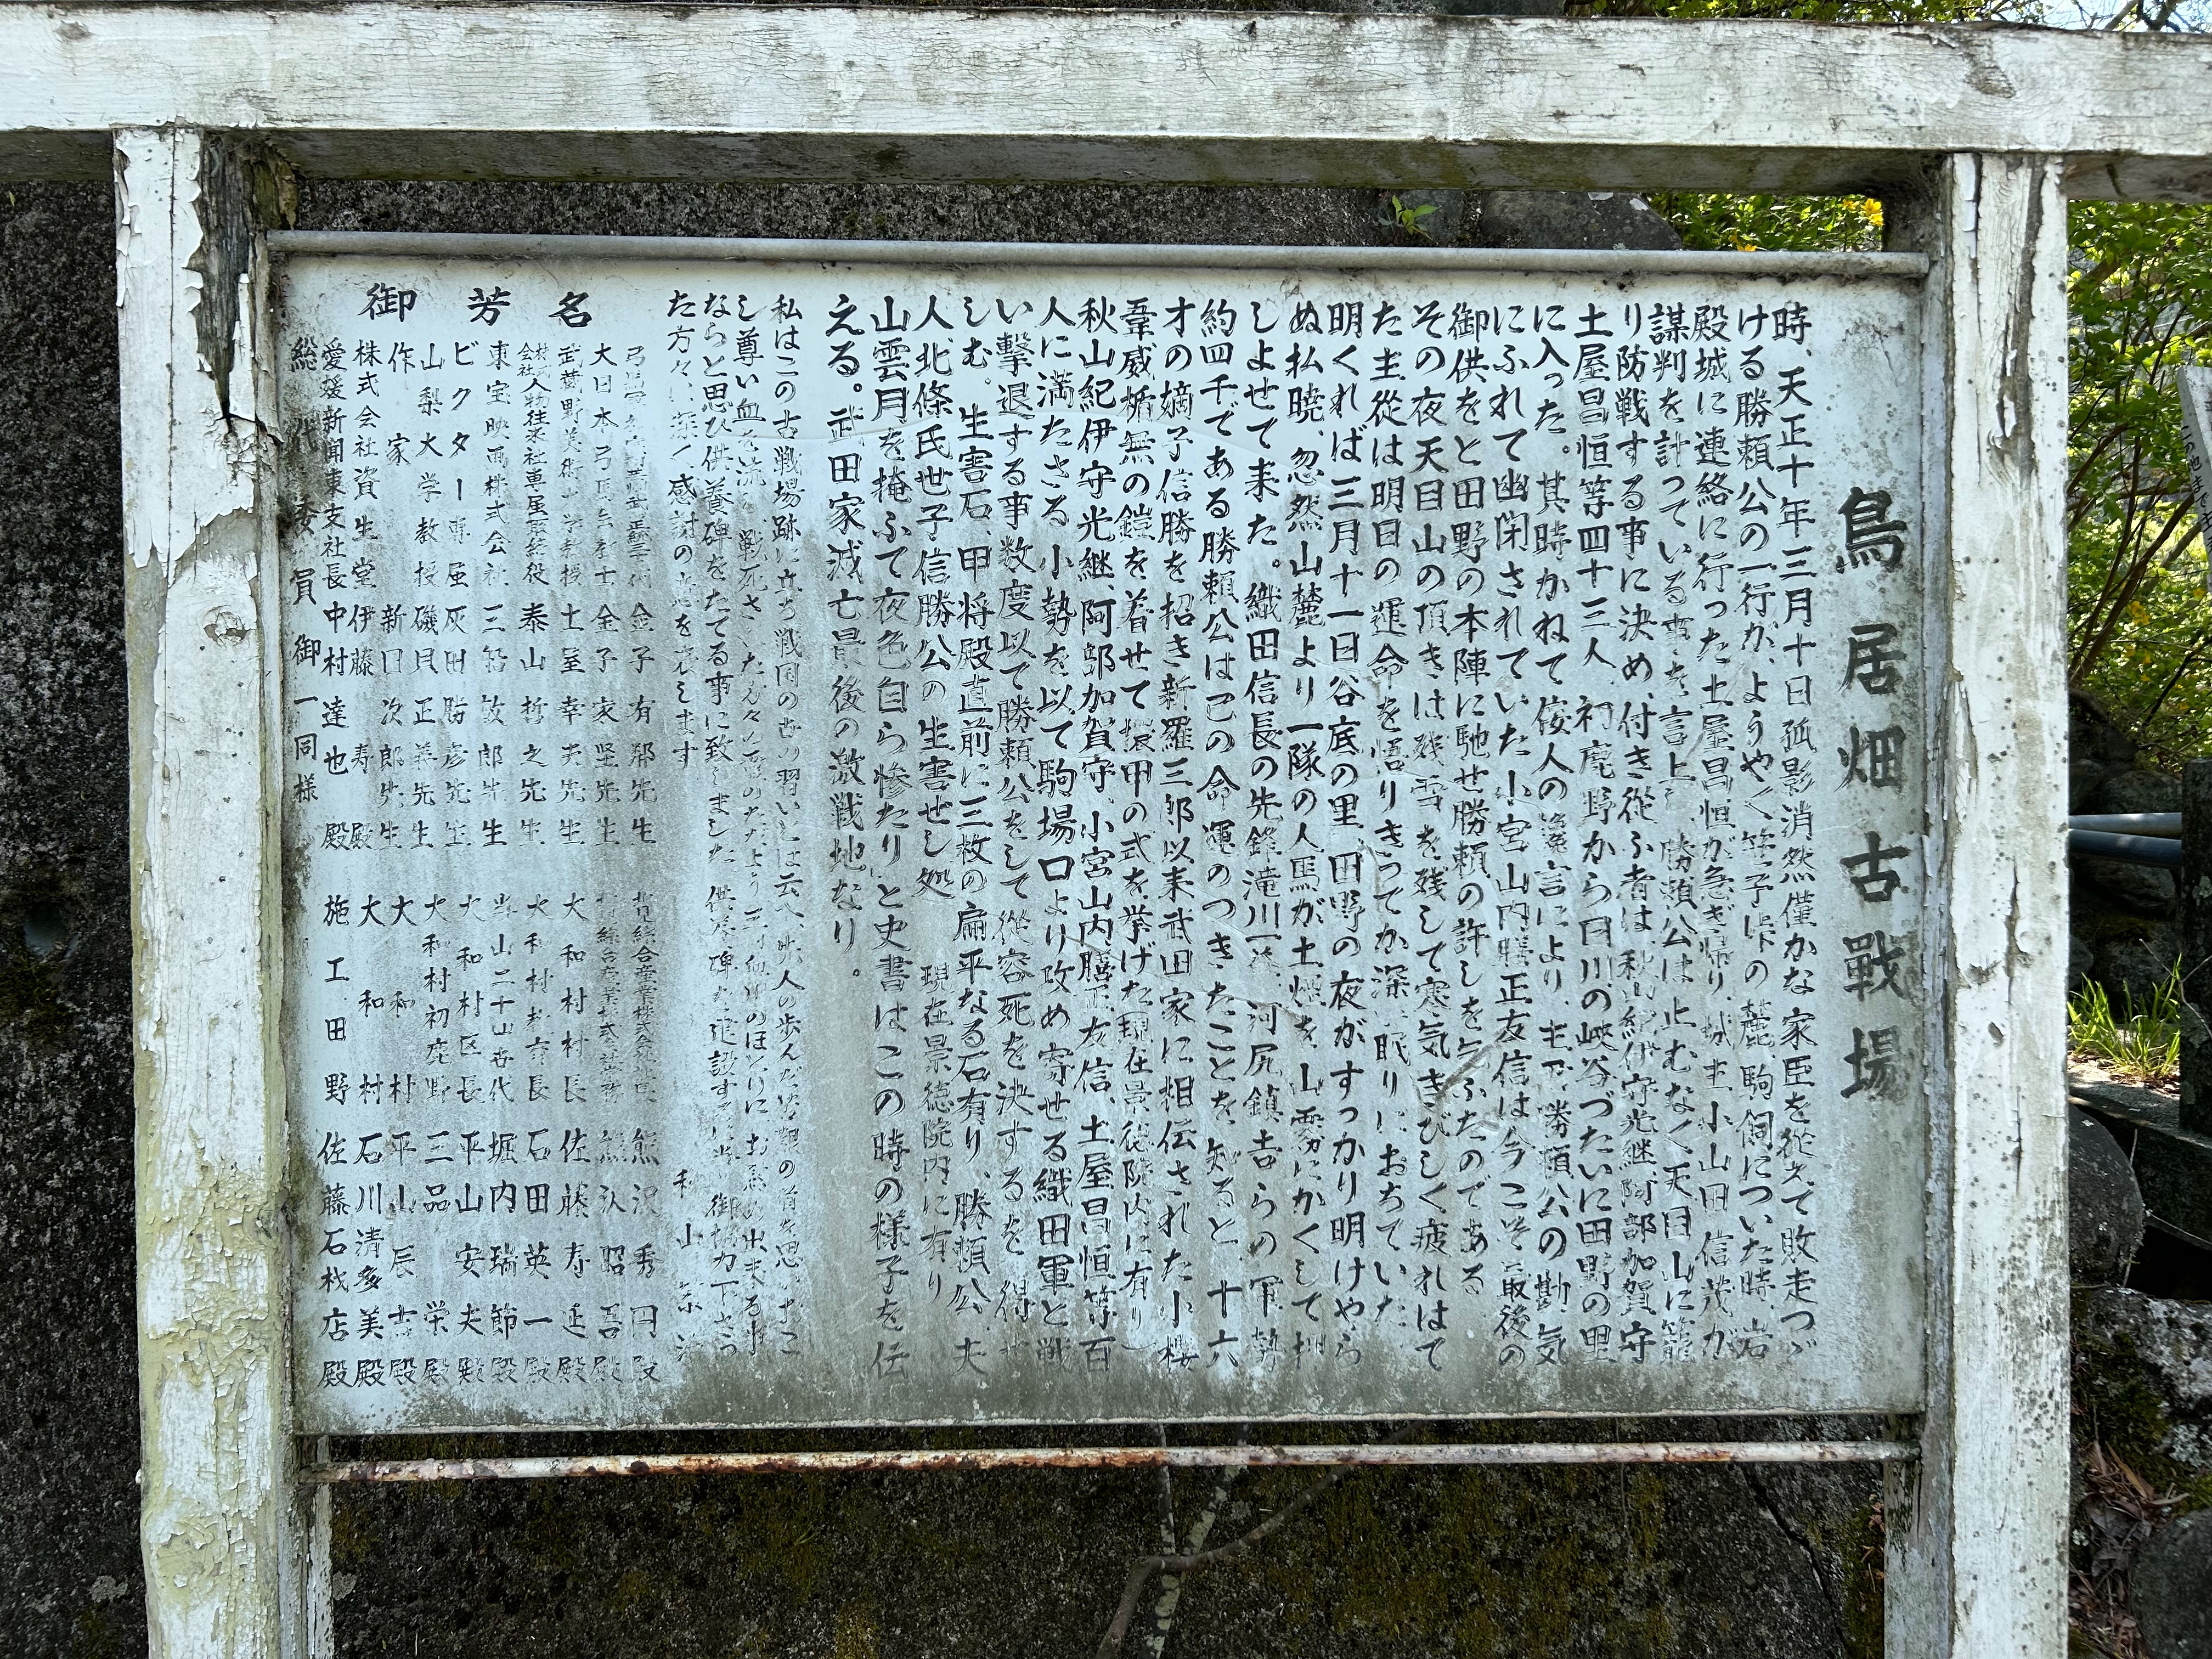 鳥居畑古戰場
時、天正十年三月十日孤影消然僅かな家臣を従えて敗走つゞ
ける勝頼公の一行が、ようやく笹子峠の麓、駒飼についた時、岩
殿城に連絡に行った土屋昌恒が急ぎ帰り、城主、小山田信茂が
謀判を計っている事を言上し、勝頼公は止むなく天目山に籠
り防戦する事に決め、付き従ふ者は、秋山紀伊守光継、阿部加賀守
土屋昌恒等四十三人、初鹿野から日川の峡谷づたいに田野の里
に入った。其時、かねて侫人の讒言により、主君勝頼公の勘気
にふれて幽閉されていた小宮山内膳正友信は今こそ最後の
御供をと田野の本陣に馳せ勝頼の許しを乞ふたのである
その夜天目山の頂きは残雪を残して寒気きびしく疲れはて
た主従は明日の運命を悟りきってか深い眠りにおちていた
明くれば三月十一日谷底の里、田野の夜がすっかり明けやら
ぬ払暁、忽然山麓より一隊の人馬が土煙を山霧にかくして押
しよせて来た。織田信長の先鋒滝川一益、河尻鎮吉らの軍勢
約四千である勝頼公は己の命運のつきたことを知ると、十六
才の嫡子信勝を招き新羅三郎以来武田家に相伝された小櫻
葦威楯無の鎧を着せて擐甲の式を挙げた(現在景徳院内に有り)
秋山紀伊守光継、阿部加賀守、小宮山内膳正友信、土屋昌恒等百
人に満たざる小勢を以て駒場口より攻め寄せる織田軍と戦
い撃退する事数度以て勝頼公をして從容死を決するを得せ
しむ。生害石、甲将殿直前に三枚の扁平なる石有り、勝頼公、夫
人北條氏世子信勝公の生害せし処 現在景徳院内に有り
山雲月を掩ふて夜色自ら惨たりと史書はこの時の様子を伝
える。武田家滅亡最後の激戦地なり。
私はこの古戦場跡に立ち戦国の世の習いとは云へ
し尊い血を流し戦死された方々
ならと思ひ供養碑をたてる事に致しました 供養碑を建設する 御協力下さっ
た方々に深く感謝の意を表します
御芳名
金子有鄰先生
大日本弓馬会 金子家堅先生
武蔵野美術大学教授 土屋幸夫先生
株式会社人物往来社専属取締役 泰山哲之先生
東宝映画株式会社 三船敏郎先生
ビクター専属 灰田勝彦先生
山梨大学教授 磯貝正義先生
作家 新田次郎先生
株式会社資生堂 伊藤寿殿
愛媛新聞東支社長 中村達也殿
総代委員御一同様
総合産業株式会社 熊沢秀円殿
総合産業株式会社 熊沢昭吾殿
大和村村長 佐藤寿延殿
大和村 石田英一殿
堀内瑞節殿
大和村区長 平山安夫殿
大和村初鹿野 三品栄殿
大和村 平山辰吉殿
大和村 石川清多美殿
施工 田野 佐藤石材店殿